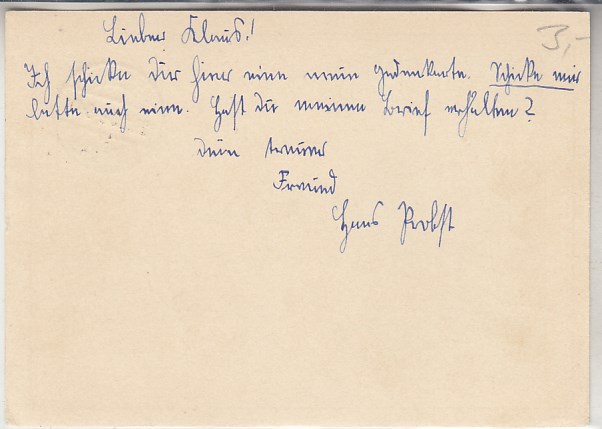 Lieber Klaus!
3,-
Ich schicke dir hier eine neue Gedenkkarte. Schicke mir
bitte auch eine. Hast du meinen Brief erhalten?
Dein treuer
Freund
Hans Probst